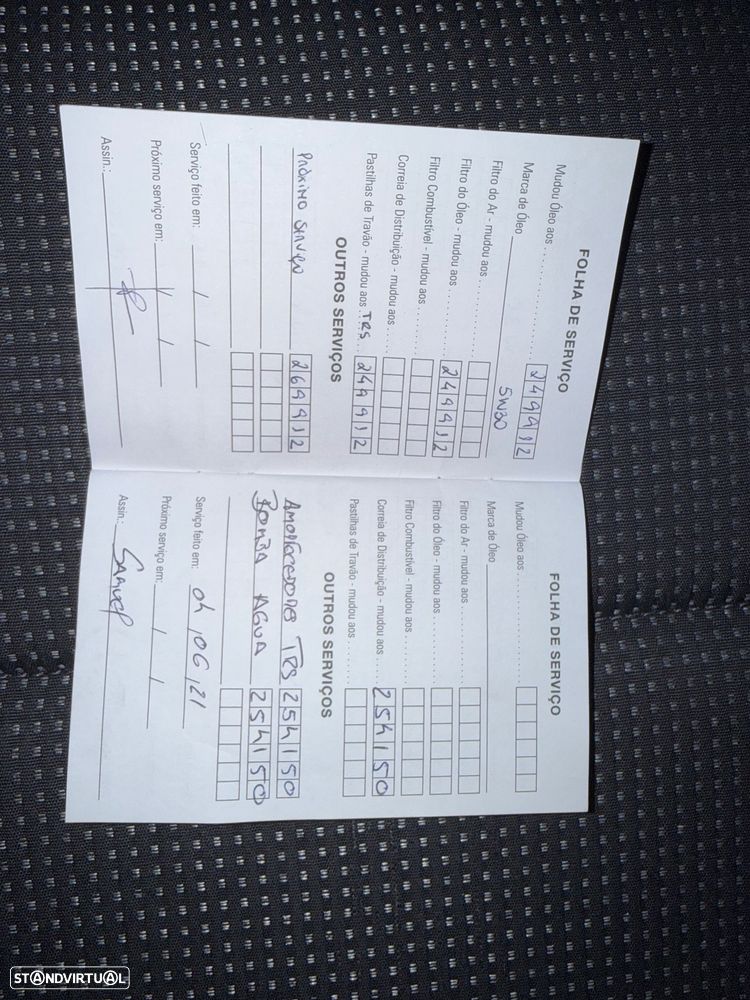 FOLHA DE SERVIÇO
Mudou Óleo aos .................. 249912
Marca de Óleo 5W30
Filtro do Ar - mudou aos ..........
Filtro do Óleo - mudou aos .......... 249912
Filtro Combustível - mudou aos ..........
Correia de Distribuição - mudou aos .....
Pastilhas de Travão - mudou aos TRS 249912
OUTROS SERVIÇOS
PRÓXIMO SERVIÇO 269912
Serviço feito em: / /
Próximo serviço em: / /
Assin.:
FOLHA DE SERVIÇO
Mudou Óleo aos ..................
Marca de Óleo
Filtro do Ar - mudou aos ..........
Filtro do Óleo - mudou aos ..........
Filtro Combustível - mudou aos ..........
Correia de Distribuição - mudou aos ..... 254150
Pastilhas de Travão - mudou aos ........
OUTROS SERVIÇOS
TRS 254150
BOMBA AGUA 254150
Serviço feito em: 04/06/21
Próximo serviço em: / /
Assin.: Samuel
STANDVIRTUAL